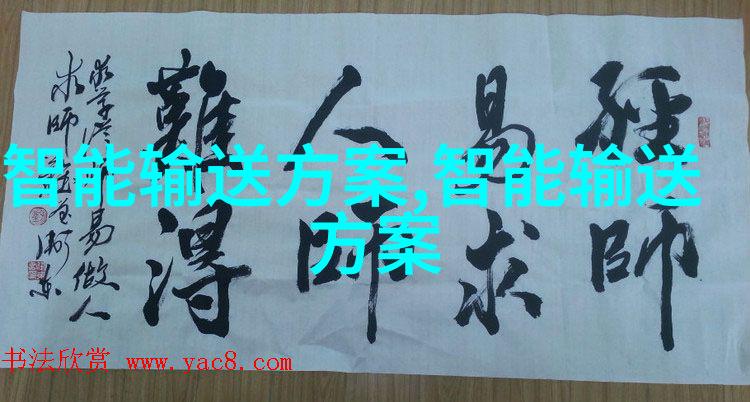 經師
易求
人師
難得
易做人
求師
智能输送方案,智能输送
方案
书法欣赏 www.yac8.com